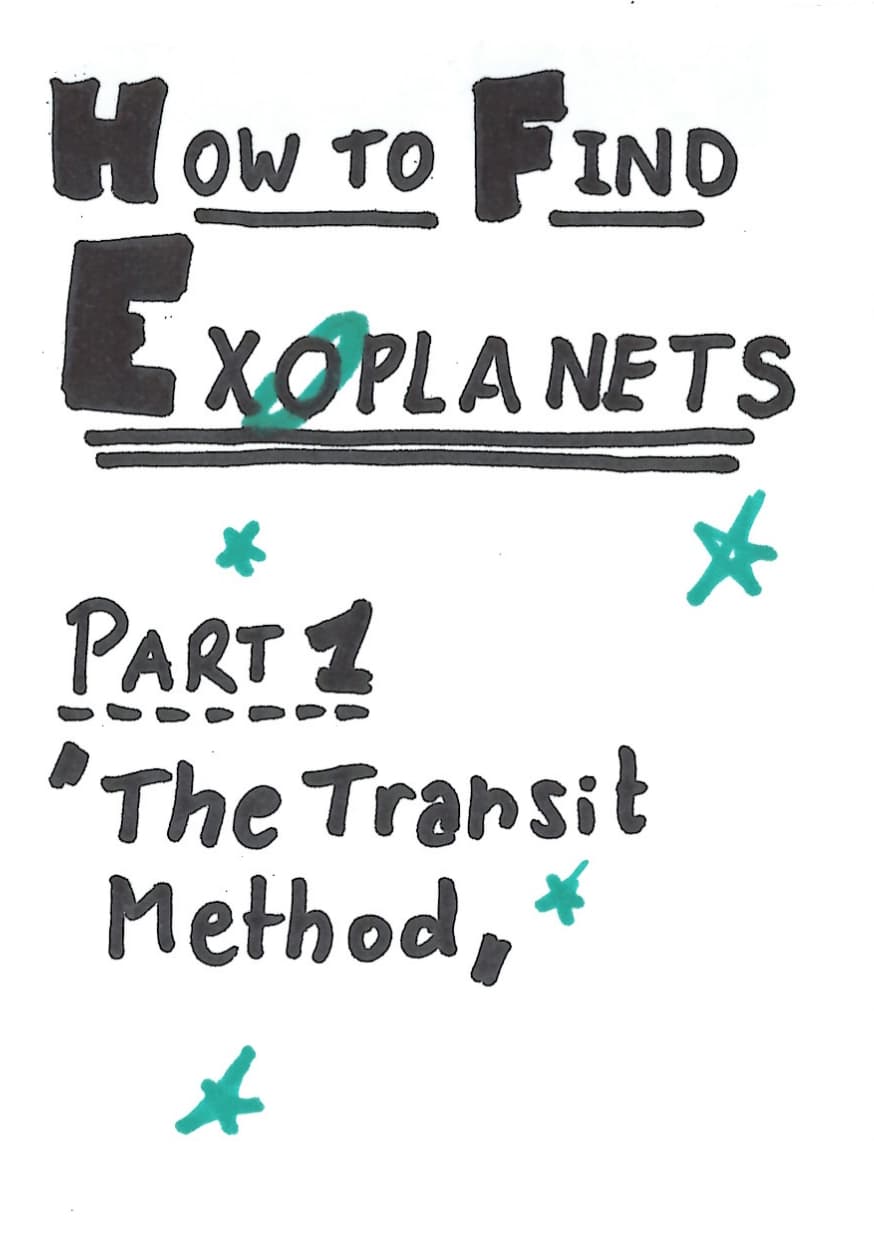 HOW TO FIND
EXOPLANETS
PART 1
"The Transit
Method„